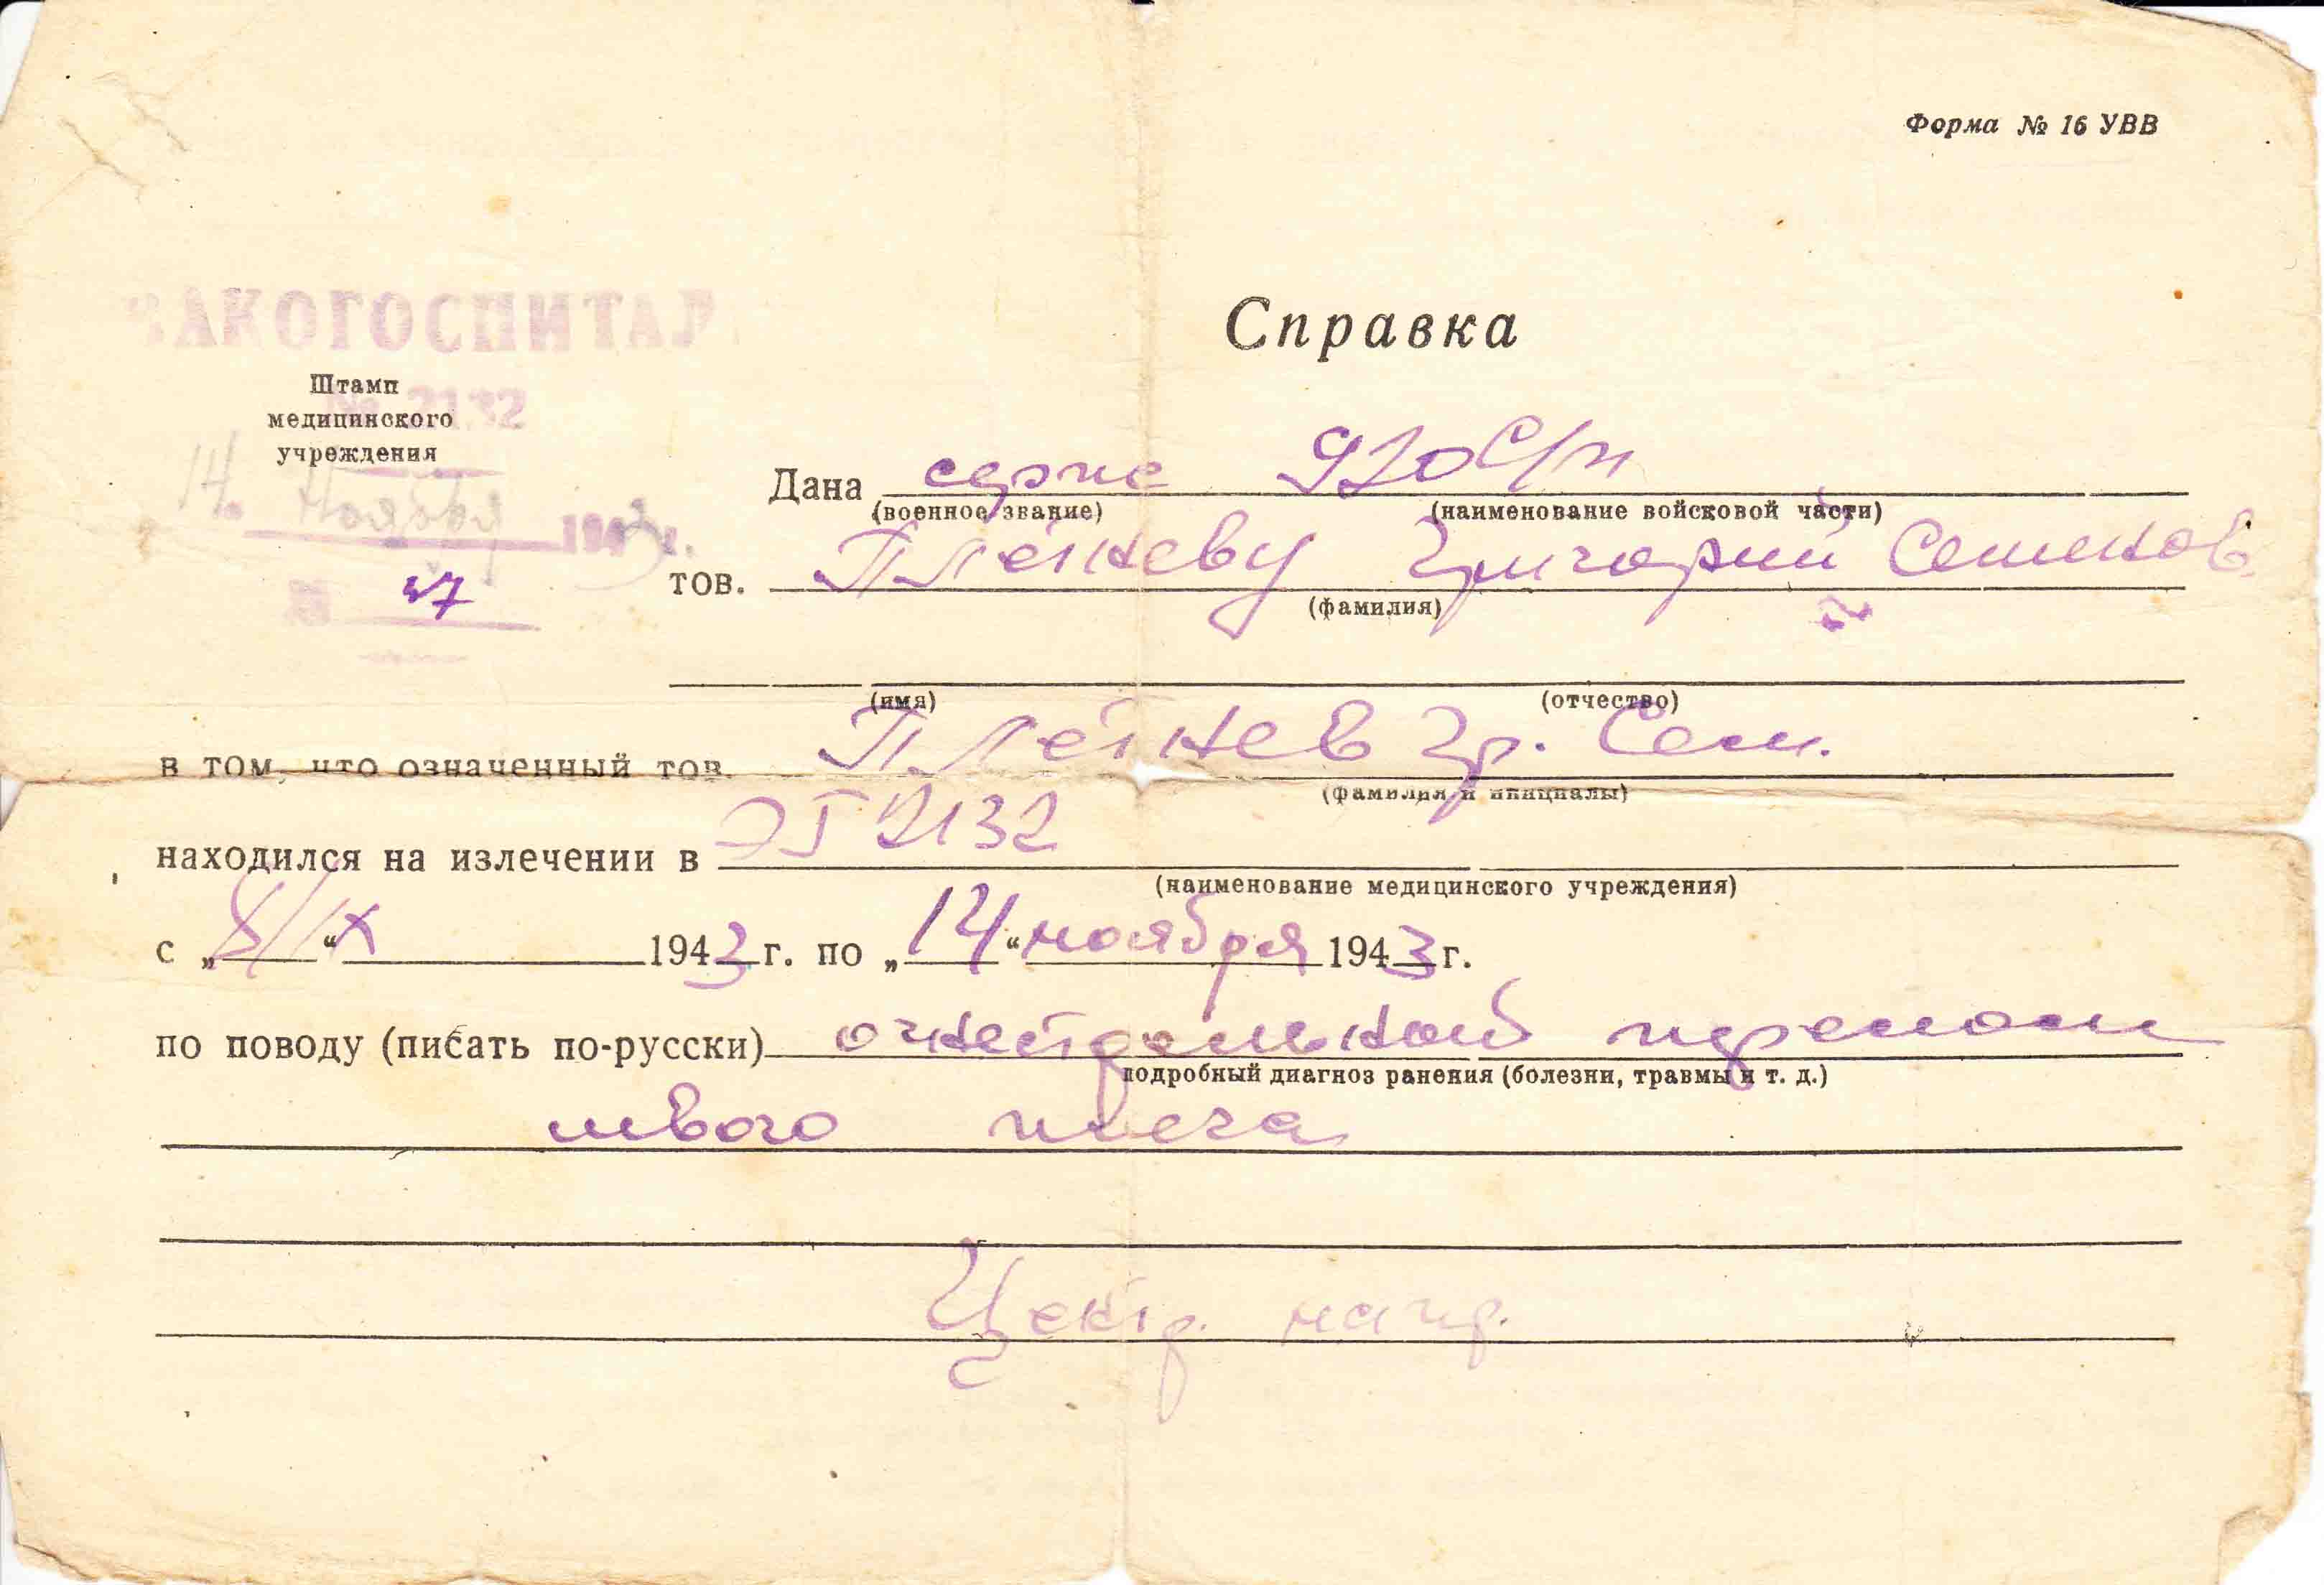 Форма № 16 УВВ
ВАКОГОСПИТАЛ
Справка
Штамп
№ 2132
медицинского
учреждения
14 Ноября 1943 г.
№ 47
Дана серж 920 С/п
(военное звание) (наименование войсковой части)
тов. Плетневу Григорий Семенов.
(фамилия)
(имя) (отчество)
в том, что означенный тов. Плетнев Гр. Сем.
(фамилия и инициалы)
находился на излечении в ЭГ 2132
(наименование медицинского учреждения)
с „ “ X 1943 г. по „14“ ноября 1943 г.
по поводу (писать по-русски) огнестрельный перелом
подробный диагноз ранения (болезни, травмы и т. д.)
левого плеча